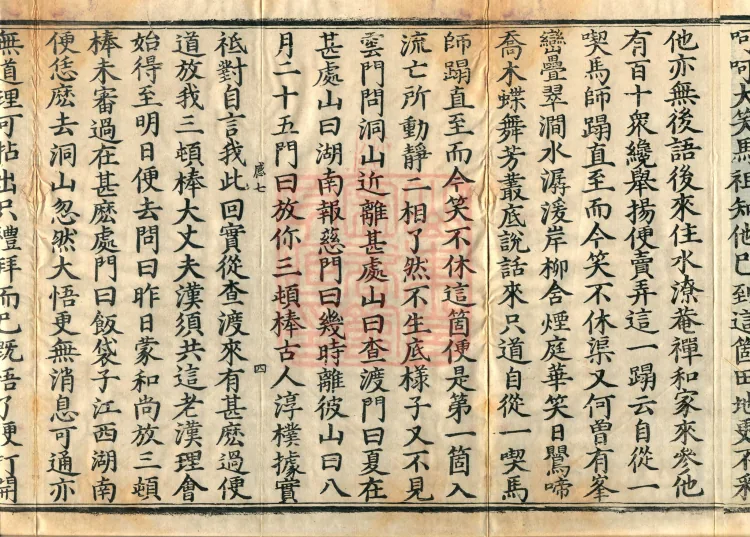 呵呵大笑馬祖知他已到這箇田地更不采
他亦無後語後來住水潦菴禪和家來參他
有百十衆纔舉揚便賣弄這一蹋云自從一
喫馬師蹋直至而今笑不休渠又何曾有峯
巒疊翠澗水潺湲岸柳含煙庭華笑日鸎啼
喬木蝶舞芳叢底說話來只道自從一喫馬
師蹋直至而今笑不休這箇便是第一箇入
流亡所動靜二相了然不生底樣子又不見
雲門問洞山近離甚處山曰查渡門曰夏在
甚處山曰湖南報慈門曰幾時離彼山曰八
月二十五門曰放你三頓棒古人淳樸據實
感七
四
祗對自言我此回實從查渡來有甚麼過便
道放我三頓棒大丈夫漢須共這老漢理會
始得至明日便去問曰昨日蒙和尚放三頓
棒未審過在甚麼處門曰飯袋子江西湖南
便恁麼去洞山忽然大悟更無消息可通亦
無道理可拈出只禮拜而已既悟了便打開